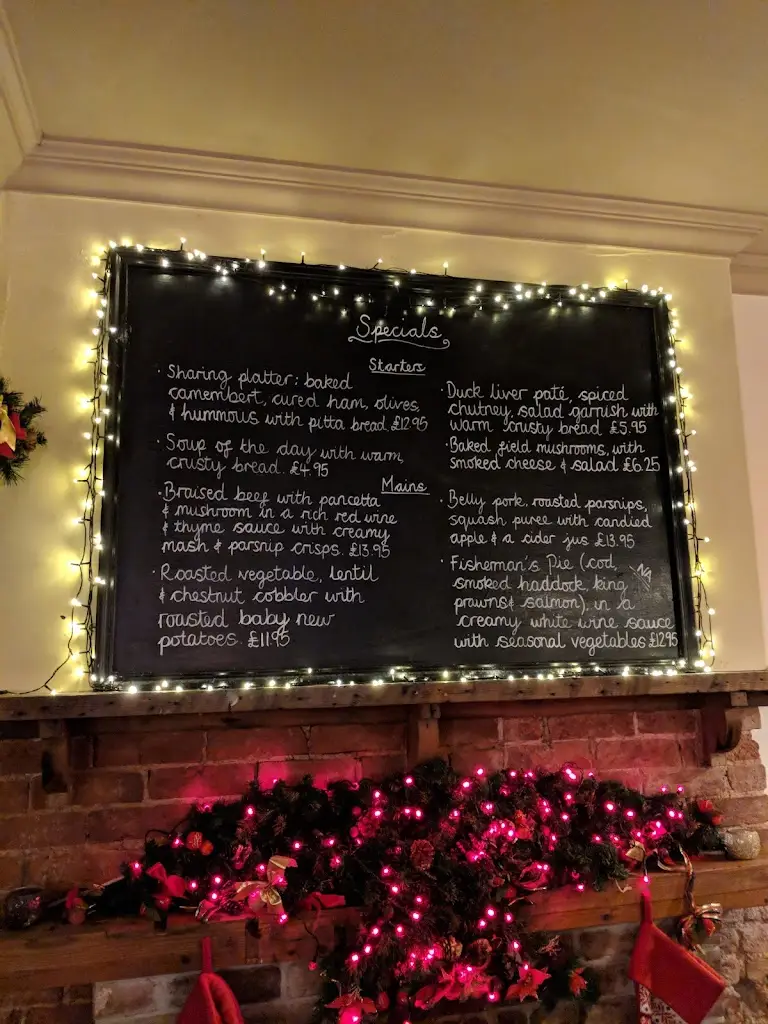 Specials
Starters
· Sharing platter: baked
camembert, cured ham, olives,
& hummous with pitta bread £12.95
· Soup of the day with warm,
crusty bread. £4.95
· Duck liver paté, spiced
chutney, salad garnish with
warm crusty bread £5.95
· Baked field mushrooms, with
smoked cheese & salad £6.25
Mains
· Braised beef with pancetta
& mushroom in a rich red wine
& thyme sauce with creamy
mash & parsnip crisps. £13.95
· Roasted vegetable, lentil
& chestnut cobbler with
roasted baby new
potatoes. £11.95
· Belly pork, roasted parsnips,
squash puree with candied
apple & a cider jus £13.95
· Fisherman's Pie (cod,
smoked haddock, king
prawns & salmon), in a
creamy white wine sauce
with seasonal vegetables £12.95